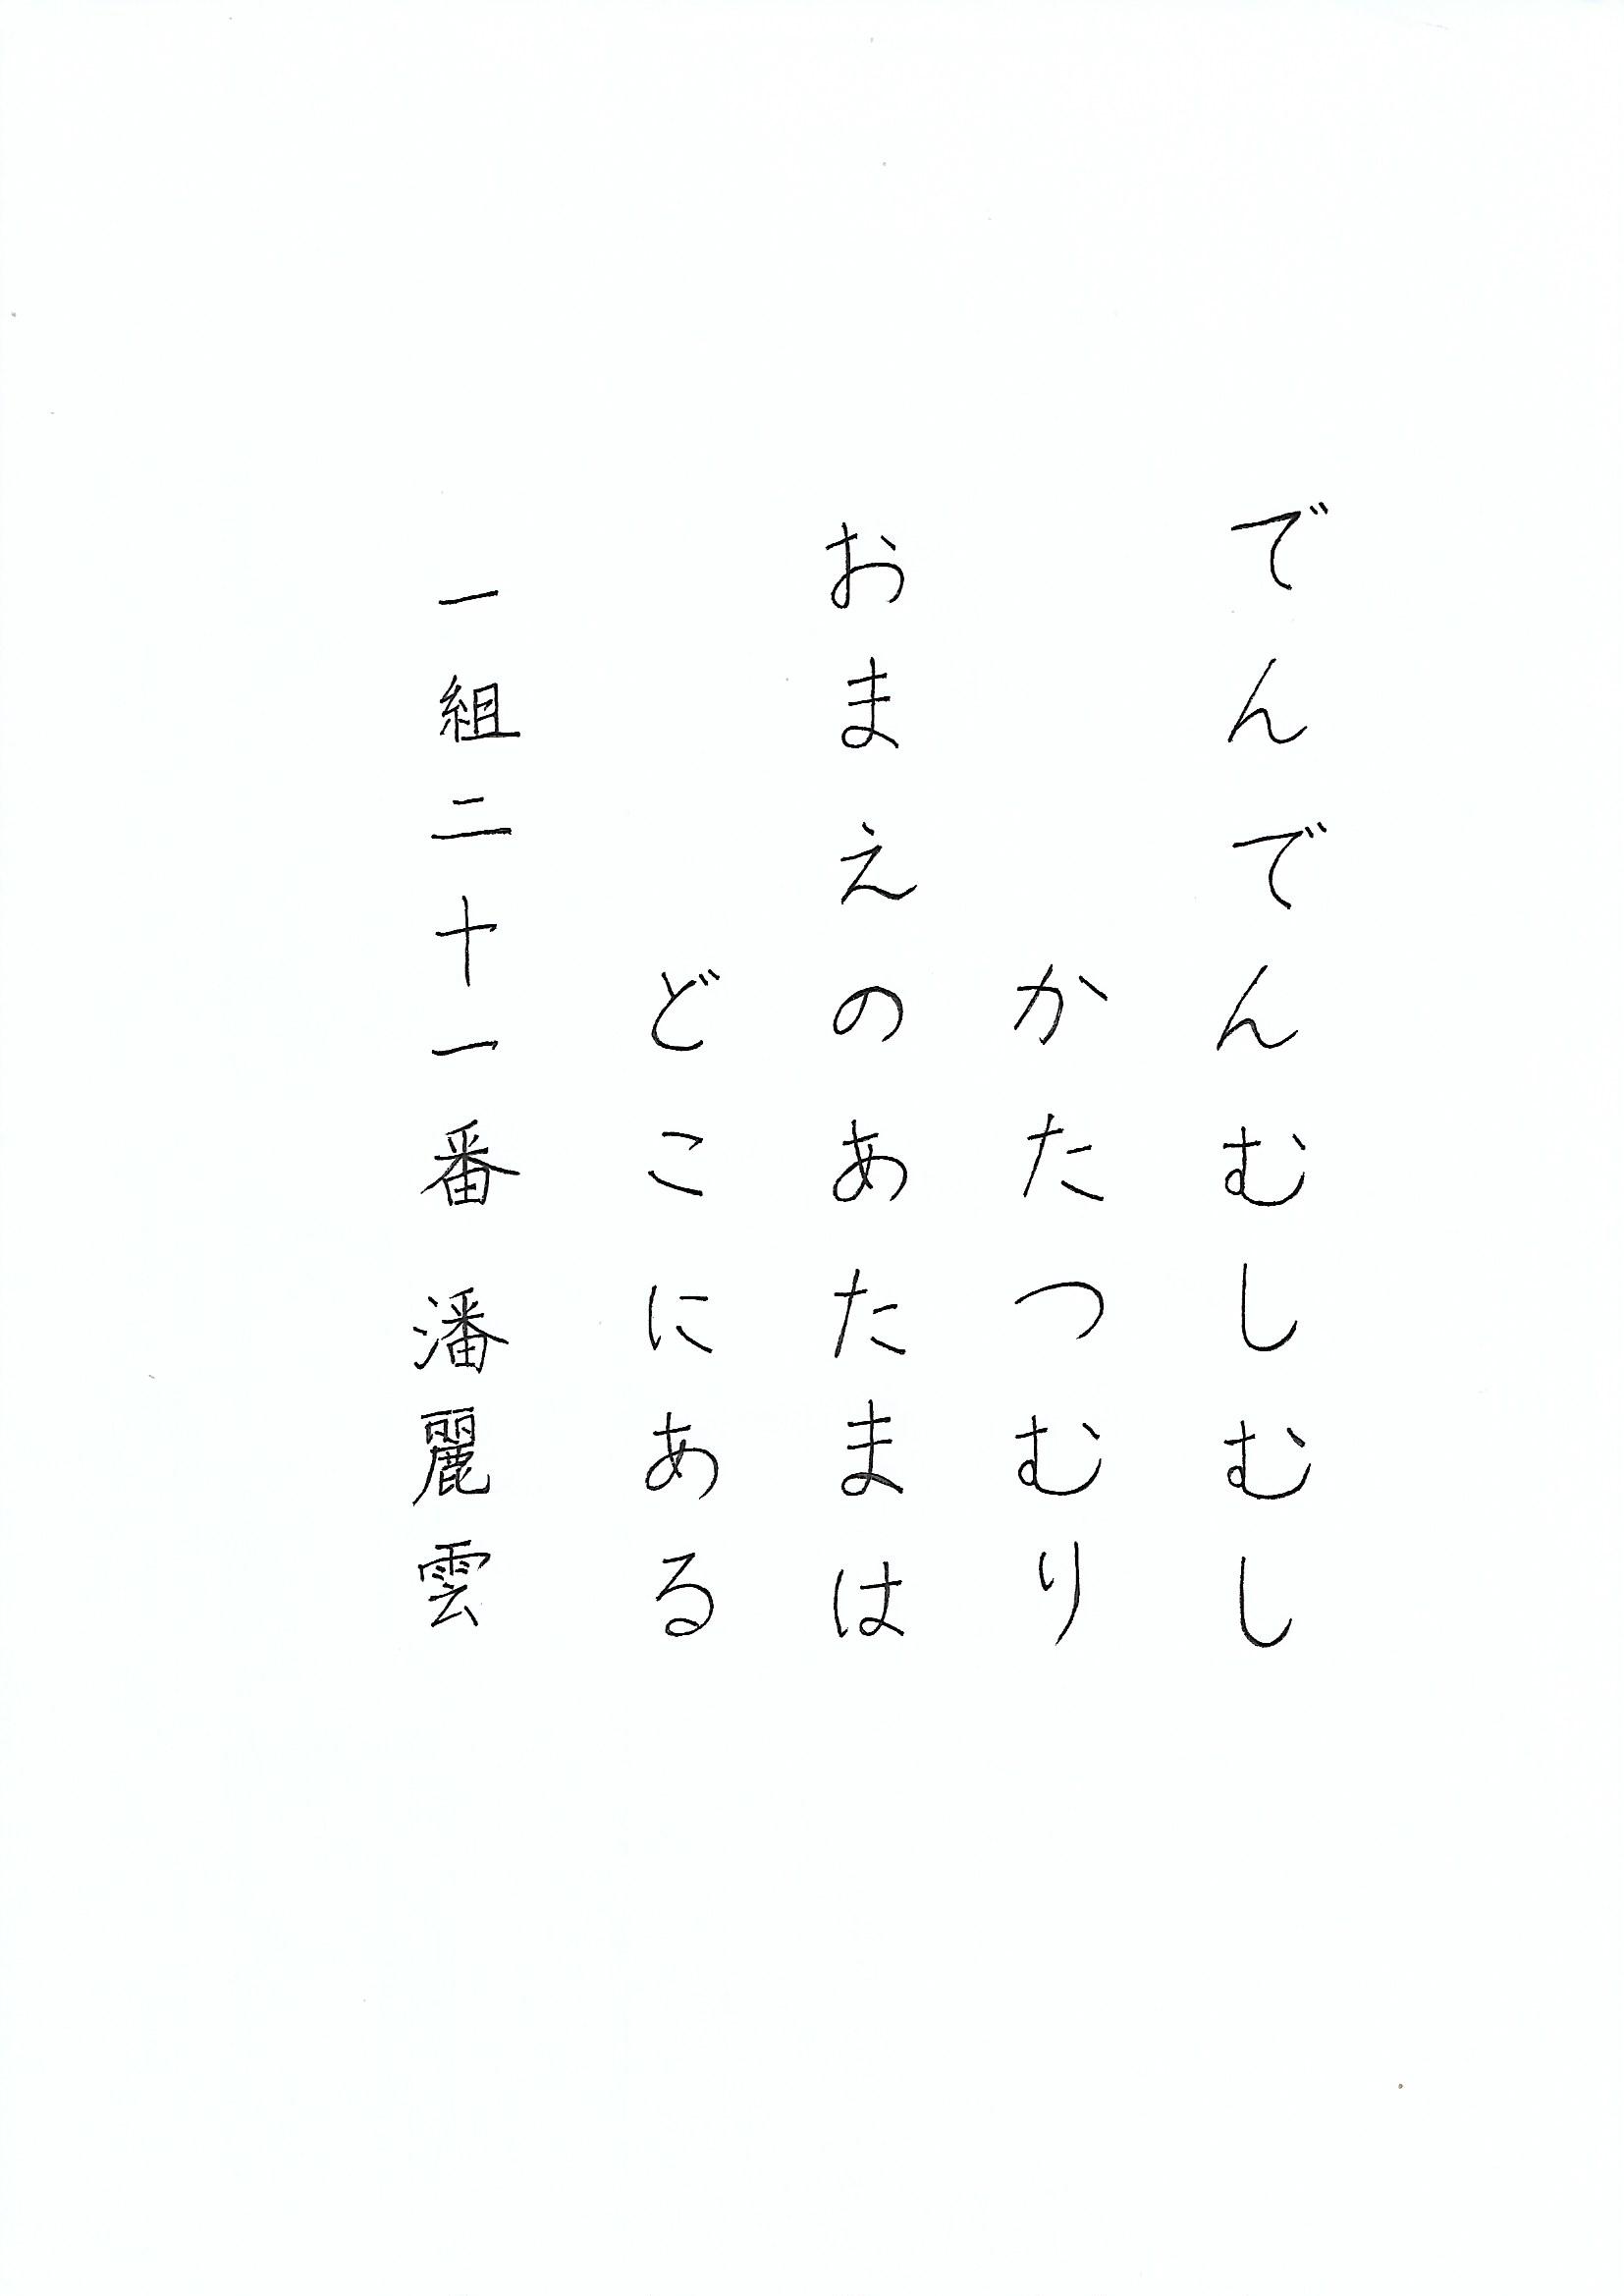 でんでんむしむし
かたつむり
おまえのあたまは
どこにある
一組二十一番 潘麗雲